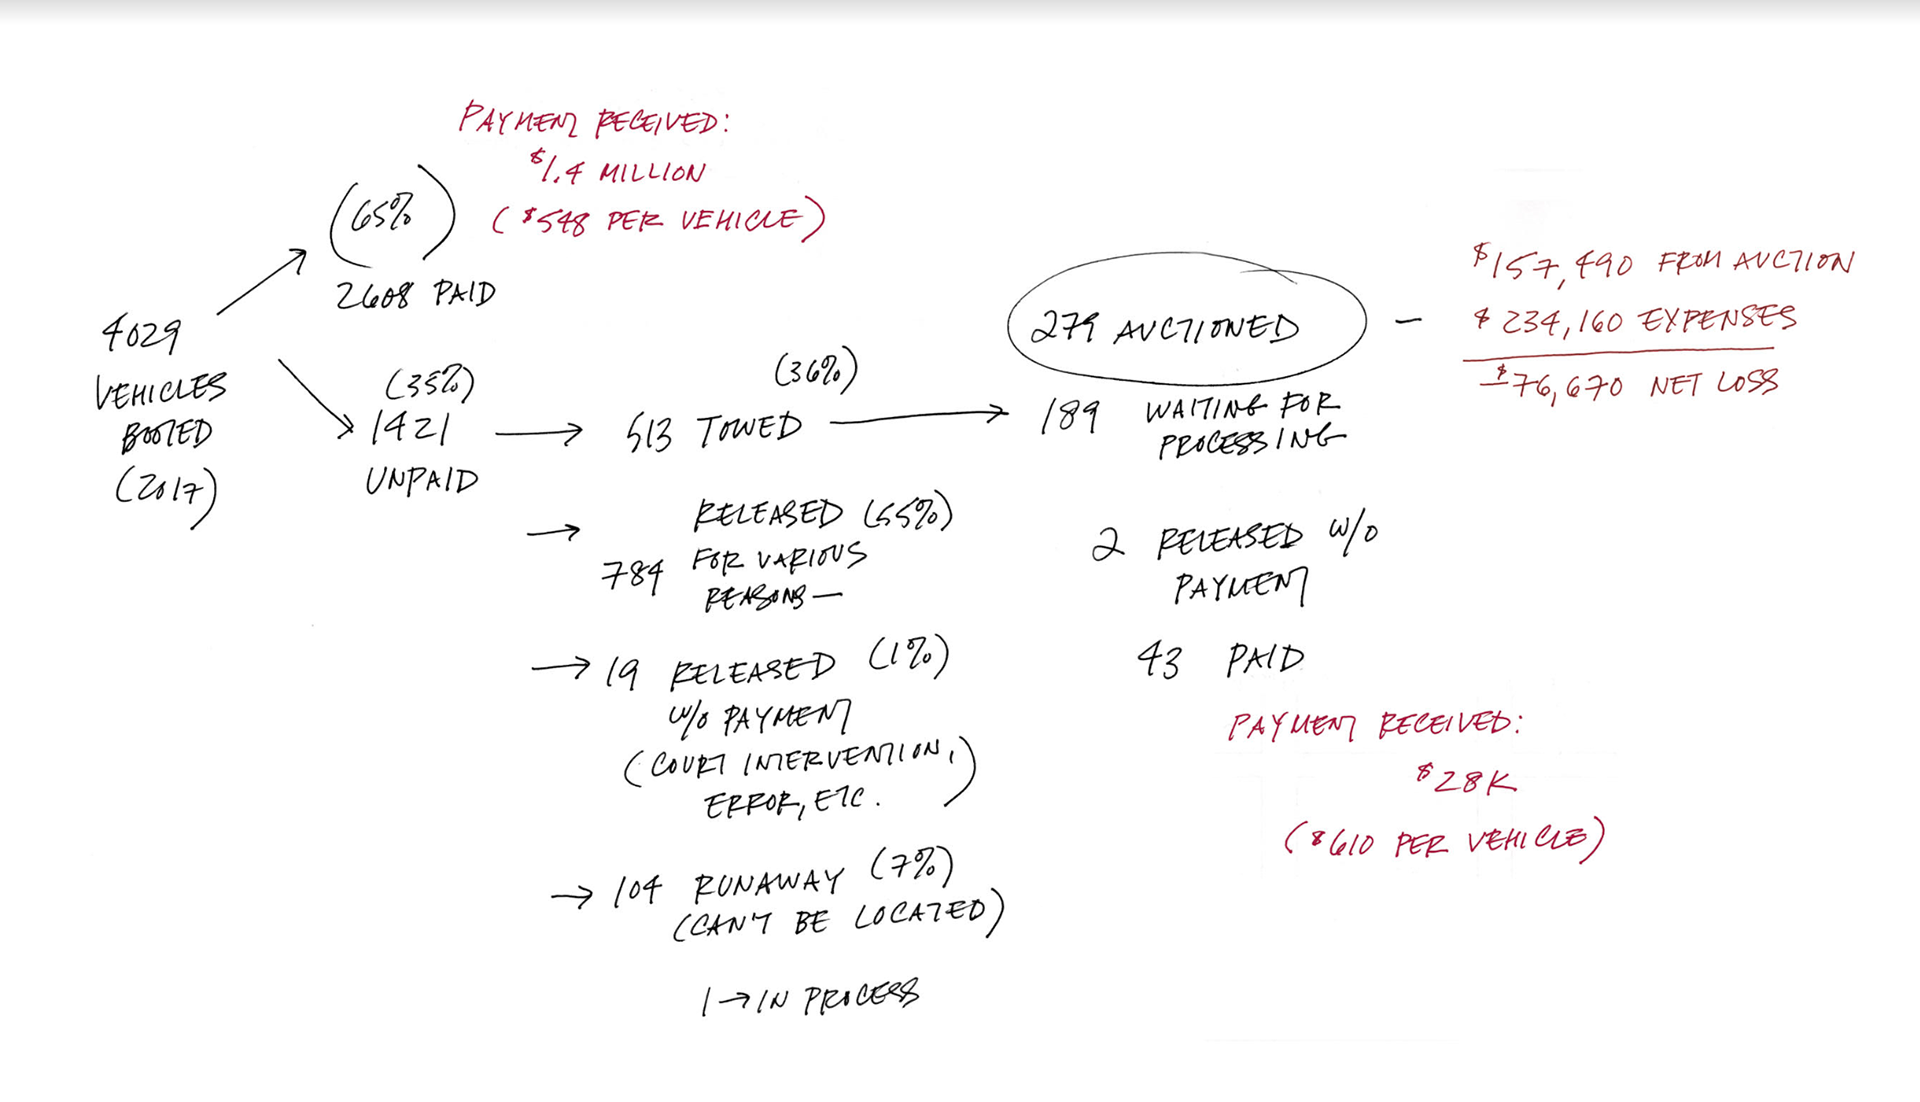 PAYMENT RECEIVED:
$1.4 MILLION
($548 PER VEHICLE)
(65%)
2608 PAID
4029
VEHICLES
BOOTED
(2017)
(35%)
1421
UNPAID
(36%)
513 TOWED
RELEASED (55%)
784 FOR VARIOUS
REASONS—
19 RELEASED (1%)
W/O PAYMENT
(COURT INTERVENTION,
ERROR, ETC.)
104 RUNAWAY (7%)
(CAN'T BE LOCATED)
1 → IN PROCESS
279 AUCTIONED –
189 WAITING FOR
PROCESSING
2 RELEASED W/O
PAYMENT
43 PAID
PAYMENT RECEIVED:
$28K
($610 PER VEHICLE)
$157,490 FROM AUCTION
$234,160 EXPENSES
–$76,670 NET LOSS